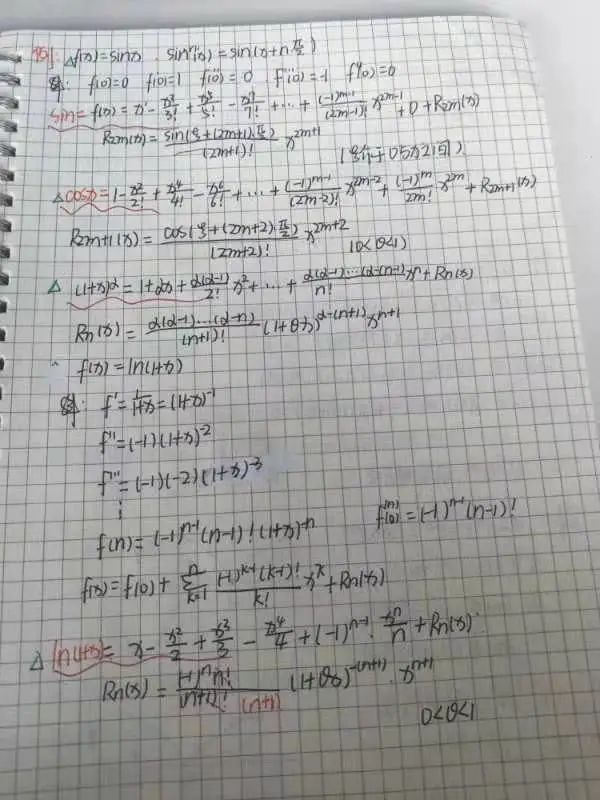 例: △f(x)=sinx . sin⁽ⁿ⁾(x)=sin(x+n·π/2)
解: f(0)=0 f'(0)=1 f''(0)=0 f'''(0)=-1 f⁽⁴⁾(0)=0
sin= f(x)=x-x³/3!+x⁵/5!-x⁷/7!+...+(-1)^(m-1)/(2m-1)! x^(2m-1)+0+R2m(x)
R2m(x)=sin(ξ+(2m+1)·π/2)/(2m+1)! x^(2m+1)
△ cosx=1-x²/2!+x⁴/4!-x⁶/6!+...+(-1)^(m-1)/(2m-2)! x^(2m-2)+(-1)^m/2m! x^(2m)+R2m+1(x)
R2m+1(x)=cos(ξ+(2m+2)·π/2)/(2m+2)! x^(2m+2) (0<θ<1)
△ (1+x)^α=1+αx+α(α-1)/2! x²+...+α(α-1)...(α-(n-1))/n! xⁿ+Rn(x)
Rn(x)=α(α-1)...(α-n)/(n+1)! (1+θx)^(α-(n+1)) x^(n+1)
f(x)=ln(1+x)
解: f'=1/(1+x)=(1+x)^-1
f''=(-1)(1+x)^-2
f'''=(-1)(-2)(1+x)^-3
⋮
f(n)=(-1)^(n-1)(n-1)!(1+x)^-n f⁽ⁿ⁾(0)=(-1)^(n-1)(n-1)!
f(x)=f(0)+Σ(k=1→n) (-1)^(k-1)(k-1)!/k! x^k+Rn(x)
△ ln(1+x)=x-x²/2+x³/3-x⁴/4+(-1)^(n-1)·xⁿ/n+Rn(x).
Rn(x)=(-1)ⁿn!/(n+1)! (n+1) (1+θx)^-(n+1)·x^(n+1)
0<θ<1